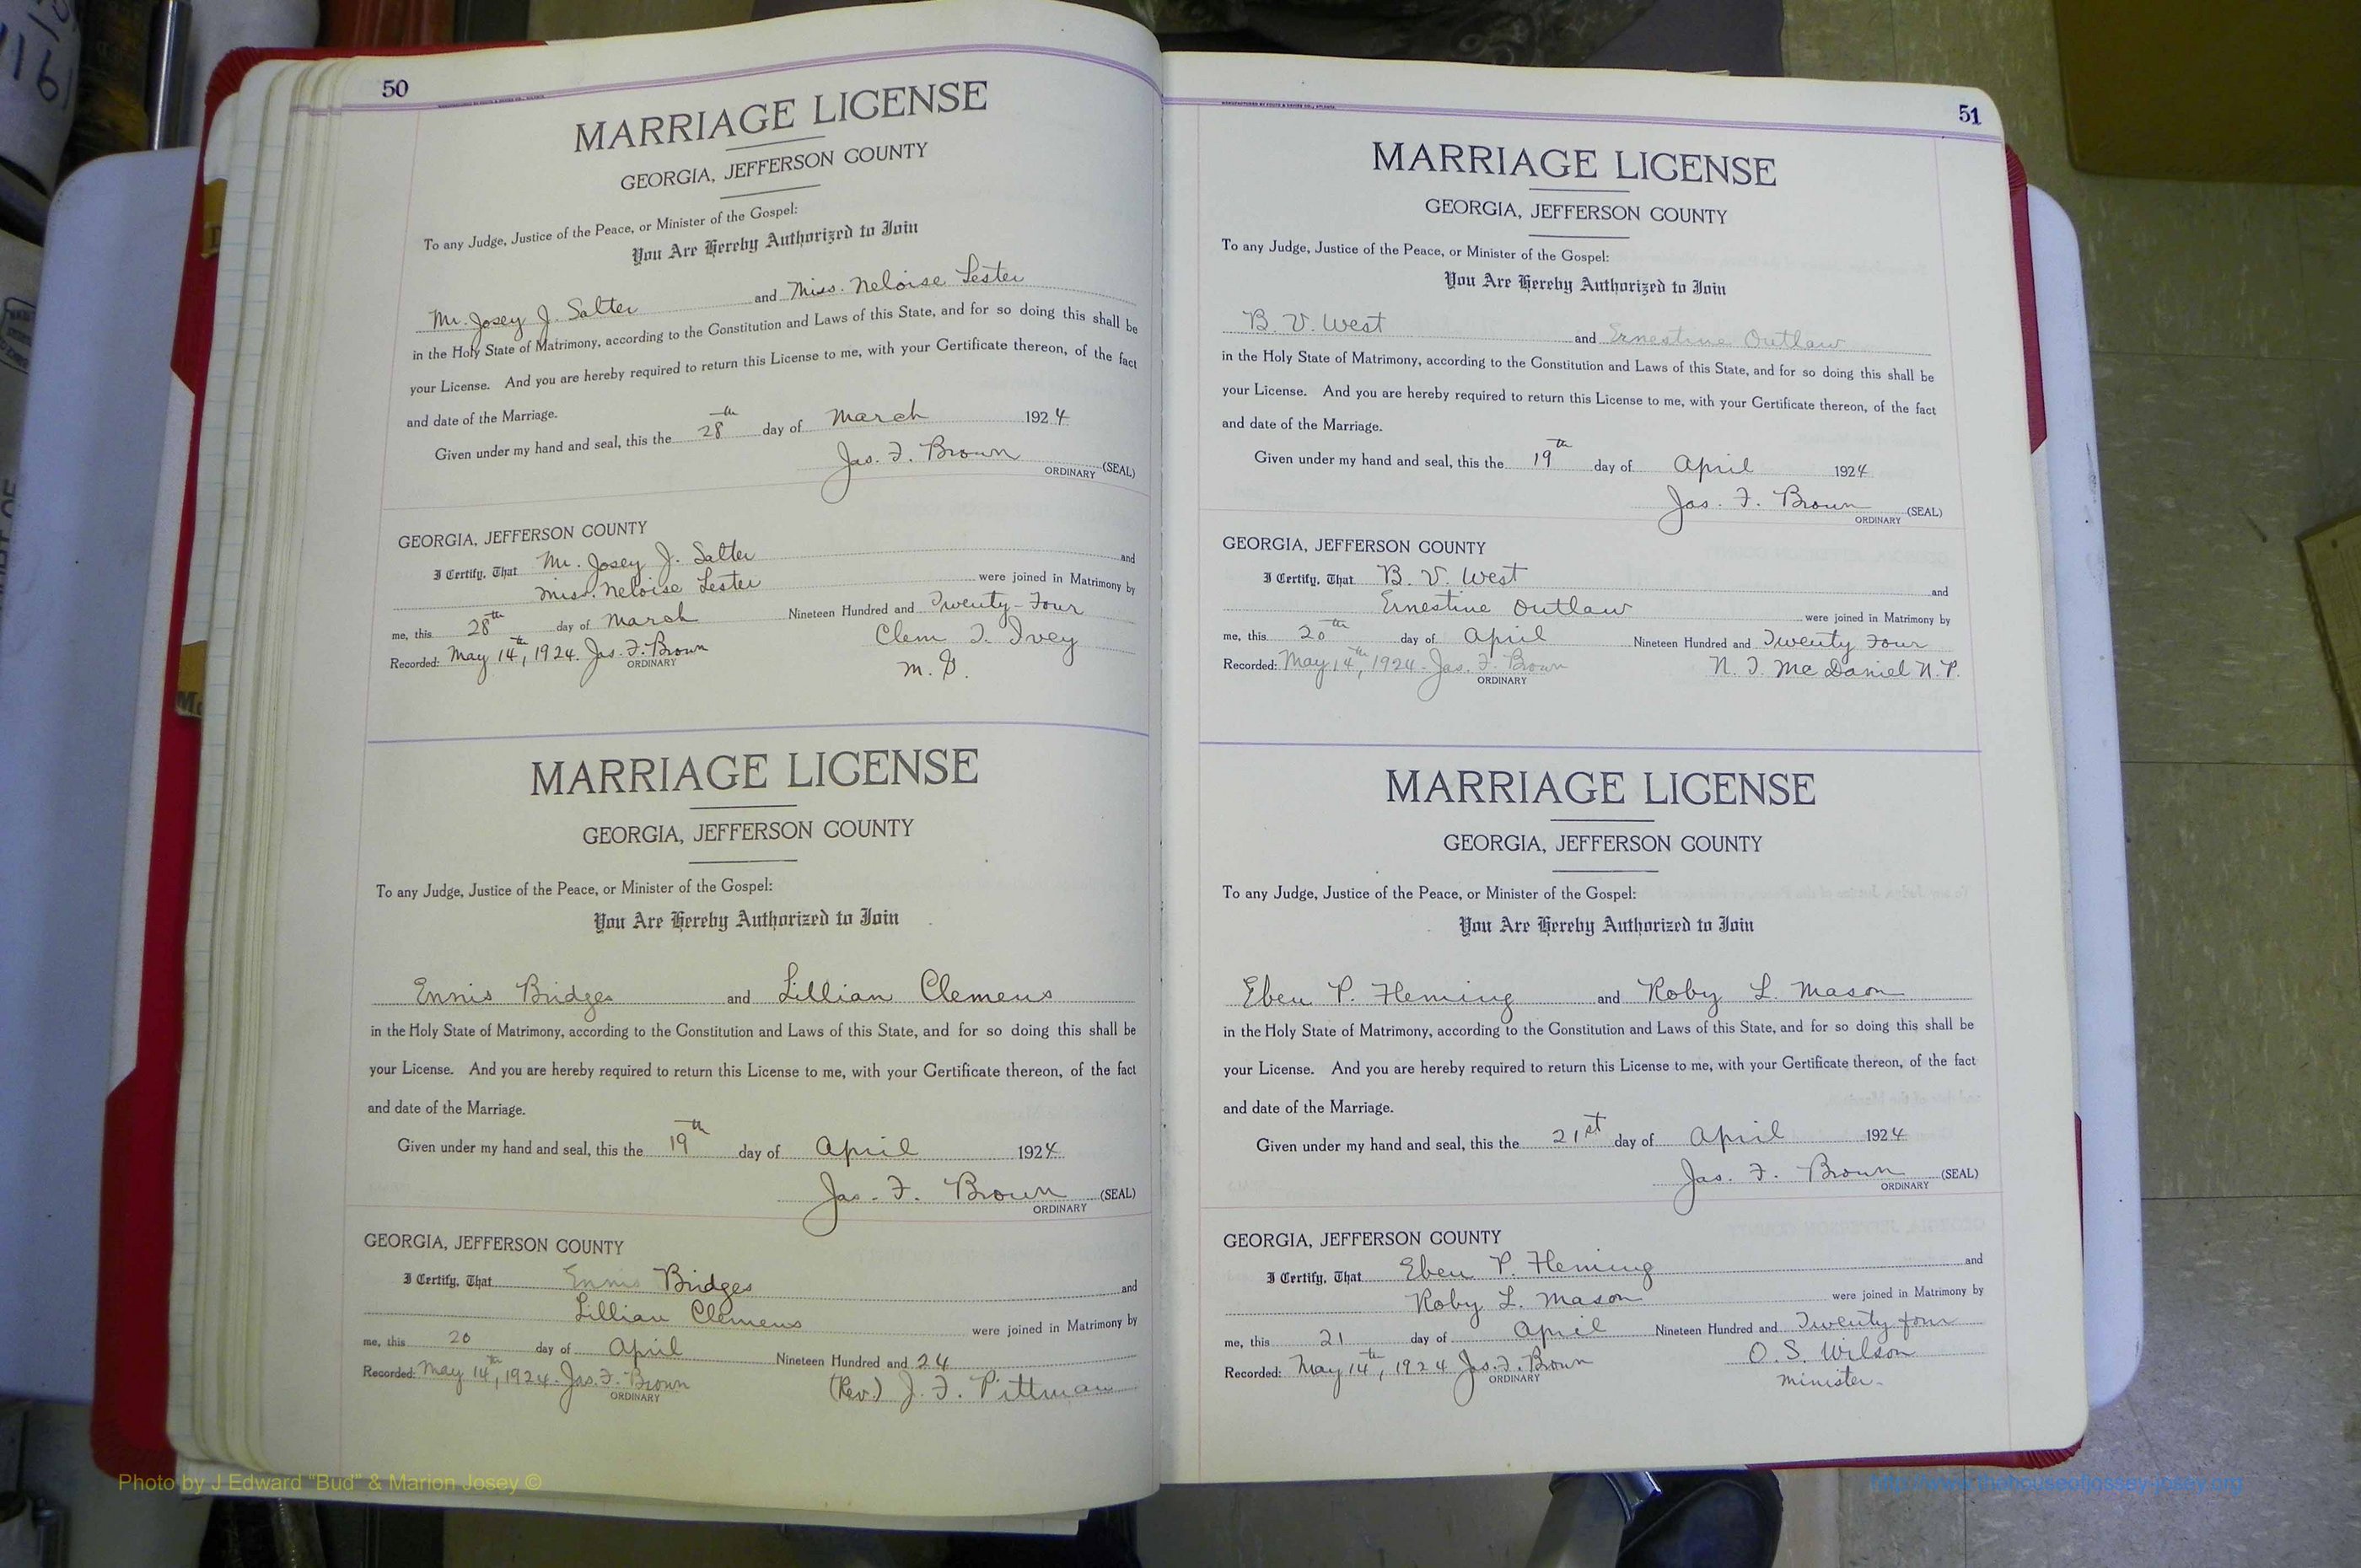 50
MARRIAGE LICENSE
GEORGIA, JEFFERSON COUNTY
To any Judge, Justice of the Peace, or Minister of the Gospel:
You Are Hereby Authorized to Join
Mr. Josey J. Salter and Miss. Neloise Lester
in the Holy State of Matrimony, according to the Constitution and Laws of this State, and for so doing this shall be
your License. And you are hereby required to return this License to me, with your Certificate thereon, of the fact
and date of the Marriage.
Given under my hand and seal, this the 28th day of March 1924
Jas. F. Brown (SEAL)
ORDINARY
GEORGIA, JEFFERSON COUNTY
I Certify, That Mr. Josey J. Salter and
Miss. Neloise Lester were joined in Matrimony by
me, this 28th day of March Nineteen Hundred and Twenty-Four
Recorded: May 14th, 1924. Jas. F. Brown Clem T. Ivey
ORDINARY
M. G.
MARRIAGE LICENSE
GEORGIA, JEFFERSON COUNTY
To any Judge, Justice of the Peace, or Minister of the Gospel:
You Are Hereby Authorized to Join
Ennis Bridges and Lillian Clemens
in the Holy State of Matrimony, according to the Constitution and Laws of this State, and for so doing this shall be
your License. And you are hereby required to return this License to me, with your Certificate thereon, of the fact
and date of the Marriage.
Given under my hand and seal, this the 19th day of April 1924
Jas. F. Brown (SEAL)
ORDINARY
GEORGIA, JEFFERSON COUNTY
I Certify, That Ennis Bridges and
Lillian Clemens were joined in Matrimony by
me, this 20 day of April Nineteen Hundred and 24
Recorded: May 14th, 1924. Jas. F. Brown (Rev.) J. F. Pittman
ORDINARY
51
MARRIAGE LICENSE
GEORGIA, JEFFERSON COUNTY
To any Judge, Justice of the Peace, or Minister of the Gospel:
You Are Hereby Authorized to Join
B. V. West and Ernestine Outlaw
in the Holy State of Matrimony, according to the Constitution and Laws of this State, and for so doing this shall be
your License. And you are hereby required to return this License to me, with your Certificate thereon, of the fact
and date of the Marriage.
Given under my hand and seal, this the 19th day of April 1924
Jas. F. Brown (SEAL)
ORDINARY
GEORGIA, JEFFERSON COUNTY
I Certify, That B. V. West and
Ernestine Outlaw were joined in Matrimony by
me, this 20th day of April Nineteen Hundred and Twenty Four
Recorded: May 14th, 1924. Jas. F. Brown N. T. McDaniel N.P.
ORDINARY
MARRIAGE LICENSE
GEORGIA, JEFFERSON COUNTY
To any Judge, Justice of the Peace, or Minister of the Gospel:
You Are Hereby Authorized to Join
Eben P. Fleming and Roby L. Mason
in the Holy State of Matrimony, according to the Constitution and Laws of this State, and for so doing this shall be
your License. And you are hereby required to return this License to me, with your Certificate thereon, of the fact
and date of the Marriage.
Given under my hand and seal, this the 21st day of April 1924
Jas. F. Brown (SEAL)
ORDINARY
GEORGIA, JEFFERSON COUNTY
I Certify, That Eben P. Fleming and
Roby L. Mason were joined in Matrimony by
me, this 21 day of April Nineteen Hundred and Twenty four
Recorded: May 14th, 1924 Jas. F. Brown O. S. Wilson
ORDINARY
minister.
Photo by J Edward "Bud" & Marion Josey ©
http://www.thehouseofjossey-josey.org